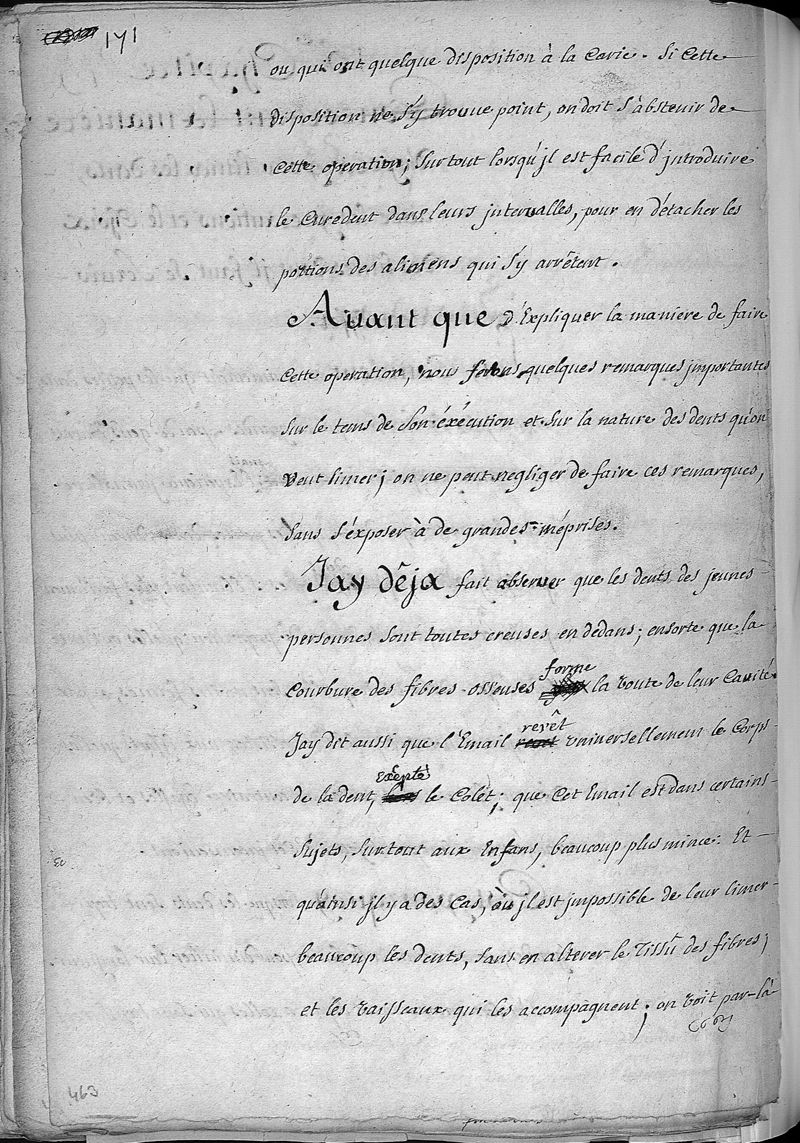 171
ou qui ont quelque disposition à la Carie. Si Cette
disposition ne s'y trouue point, on doit s'abstenir de
Cette operation; sur tout lorsqu'jl est facile d'jntroduire
le Curedent dans leurs jntervalles, pour en détacher les
portions des alimens qui s'y arrêtent.
Auant que d'Expliquer la maniere de faire
Cette operation, nous ferons quelques remarques jmportantes
sur le tems de son éxécution et sur la nature des dents qu'on
veut limer; on ne peut negliger de faire ces remarques,
sans s'éxposer à de grandes méprises.
Jay dêja fait obseruer que les dents des jeunes
personnes sont toutes creuses en dedans; ensorte que la
Courbure des fibres osseuses forme la voute de leur Cauité
Jay dit aussi que l'Email revêt vniversellement le Corps
de la dent, Excepté le Colet; que Cet Email est dans certains
Sujets, surtout aux Enfans, beaucoup plus mince: Et
qu'ainsi jl y a des Cas, où jl est jmpossible de leur limer
beaucoup les dents, sans en alterer le Tissu des fibres;
et les vaisseaux qui les accompagnent; on voit par-là
463